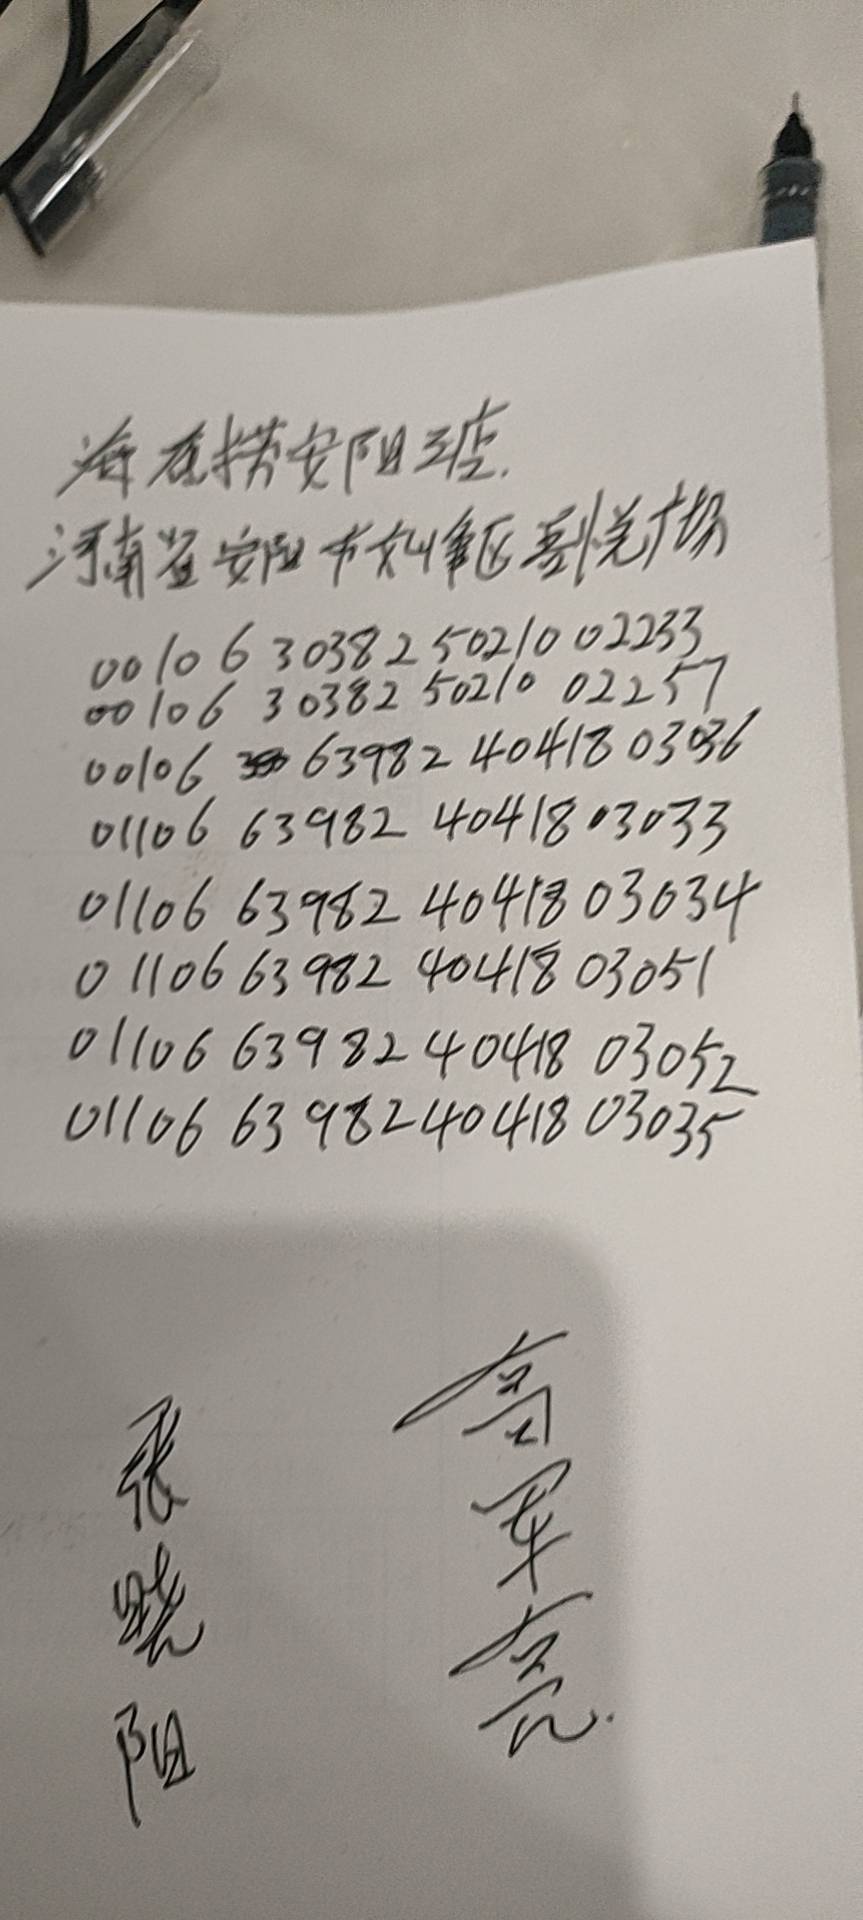 海底捞安阳三店.
河南省安阳市文峰区吾悦广场
00106 30382 50210 02233
00106 30382 50210 02257
00106 63982 40418 03036
01106 63982 40418 03033
01106 63982 40418 03034
01106 63982 40418 03051
01106 63982 40418 03052
01106 63982 40418 03035
张晓阳
高军亮.